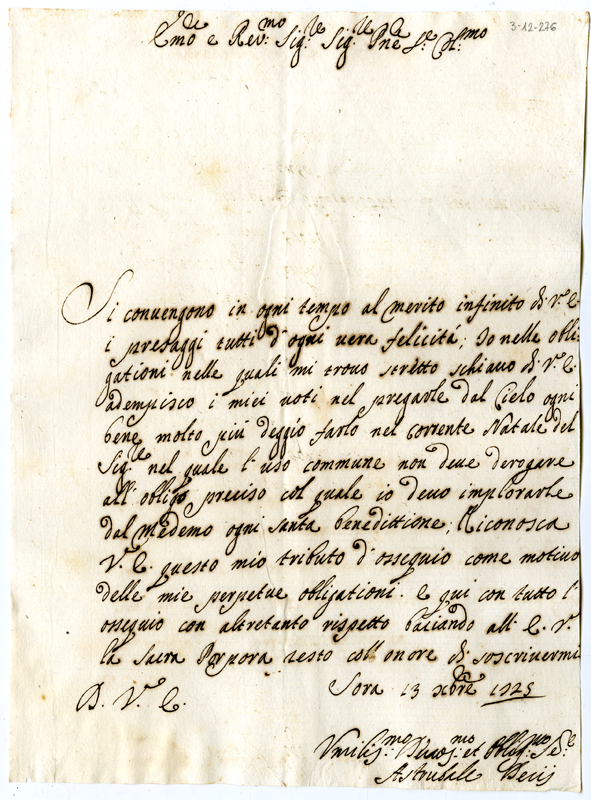 3-12-276
Emo e Revmo Sigre Sigre Pne Se Clmo
Si convengono in ogni tempo al merito infinito di V.a E.
i presaggi tutti d'ogni vera felicitá; Io nelle obli-
gationi nelle quali mi trovo stretto schiavo di V.a E.
adempisco i miei voti nel pregarle dal Cielo ogni
bene molto piú deggio farlo nel corrente Natale del
Sigre nel quale l'uso commune non deve derogare
all'obligo preciso col quale io devo implorarle
dal medemo ogni santa benedittione; Riconosca
V.a E. questo mio tributo d'ossequio come motivo
delle mie perpetue obligationi. e qui con tutto l'
ossequio con altretanto rispetto baciando all'E. V.a
la Sacra Porpora resto coll'onore di soscrivermi
D. V.a E.
Sora 13 Xbre 1725
Umiliss.mo Devos.mo et Oblig.mo Se.e
Astrubale Decij